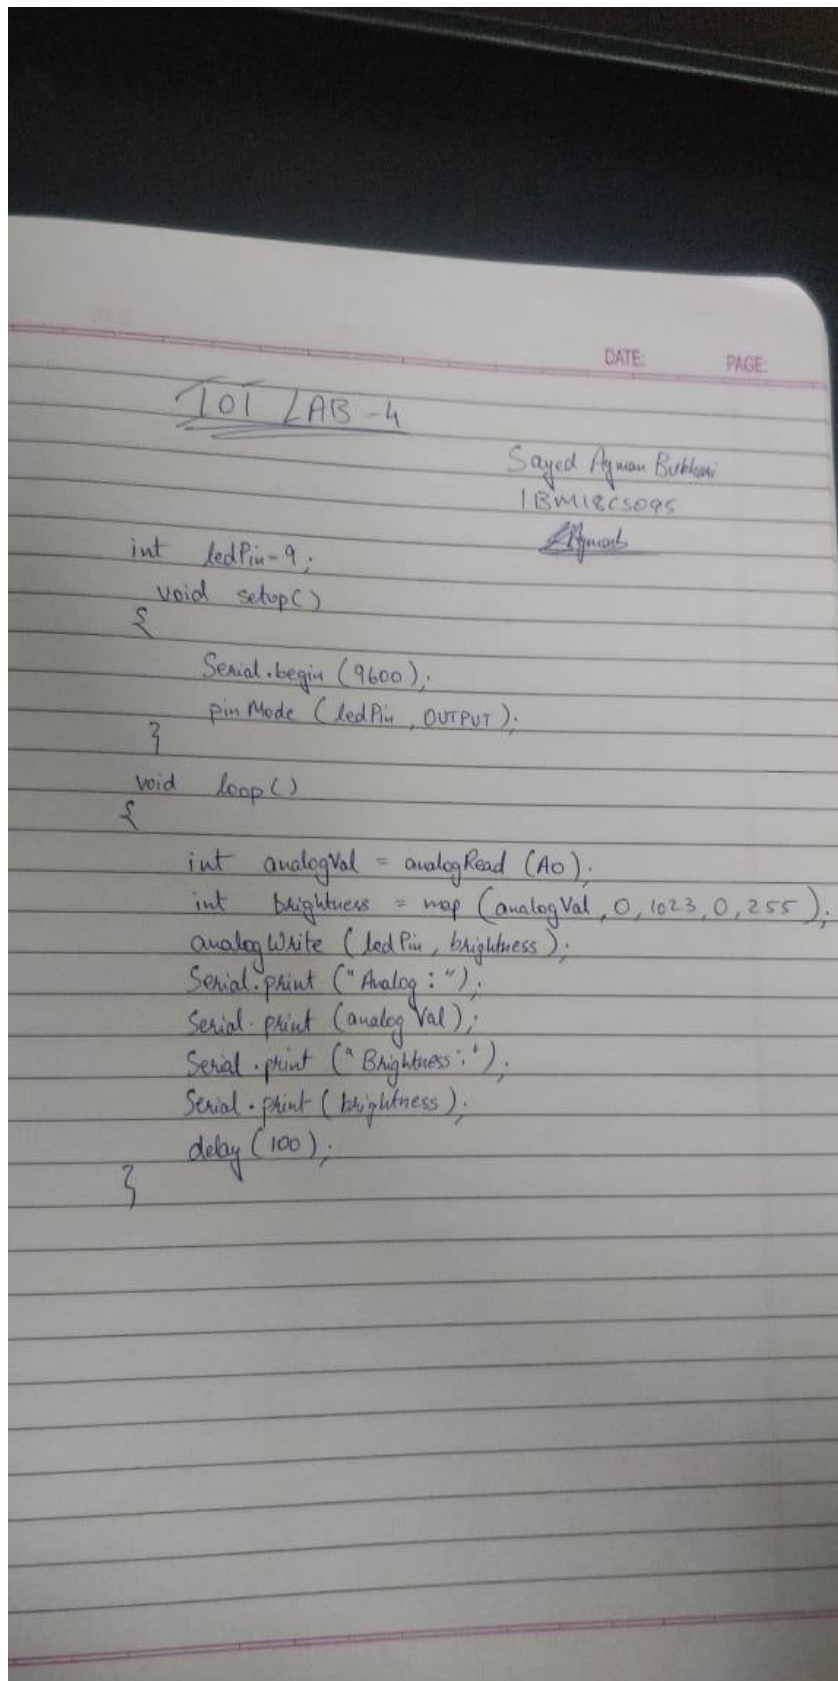 DATE: PAGE:
IOT LAB-4
Sayed Ayman Bukhari
1BM18CS095
int ledPin-9;
void setup()
{
Serial.begin (9600);
pinMode (ledPin, OUTPUT);
}
void loop()
{
int analogVal = analogRead (A0);
int brightness = map (analogVal, 0, 1023, 0, 255);
analogWrite (ledPin, brightness);
Serial.print ("Analog : ");
Serial.print (analogVal);
Serial.print ("Brightness:");
Serial.print (brightness);
delay (100);
}